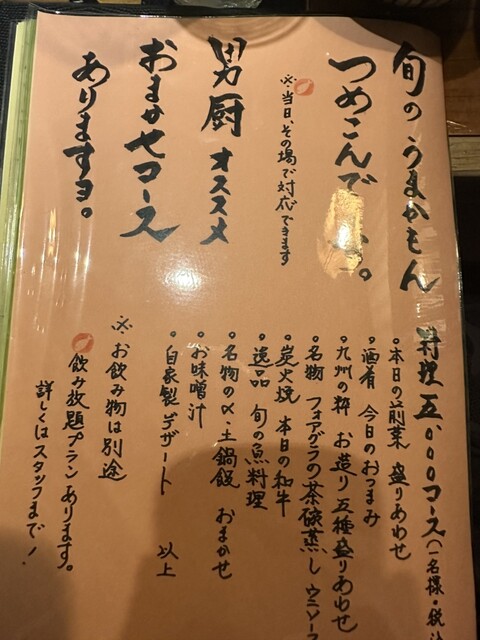 旬のうまかもん
つめこんで
。
※当日、その場で対応できます
男厨オススメ
おまかせコース
ありますヨ。
料理五、〇〇〇コース(一名様・税込
・本日の前菜 盛りあわせ
・酒肴 今日のおつまみ
・九州の粋 お造り 五種盛りあわせ
・名物 フォアグラの茶碗蒸し ウニソース
・炭火焼 本日の和牛
・逸品 旬の魚料理
・名物の〆・土鍋飯 おまかせ
・お味噌汁
・自家製デザート 以上
※お飲み物は別途
飲み放題プランあります。
詳しくはスタッフまで!